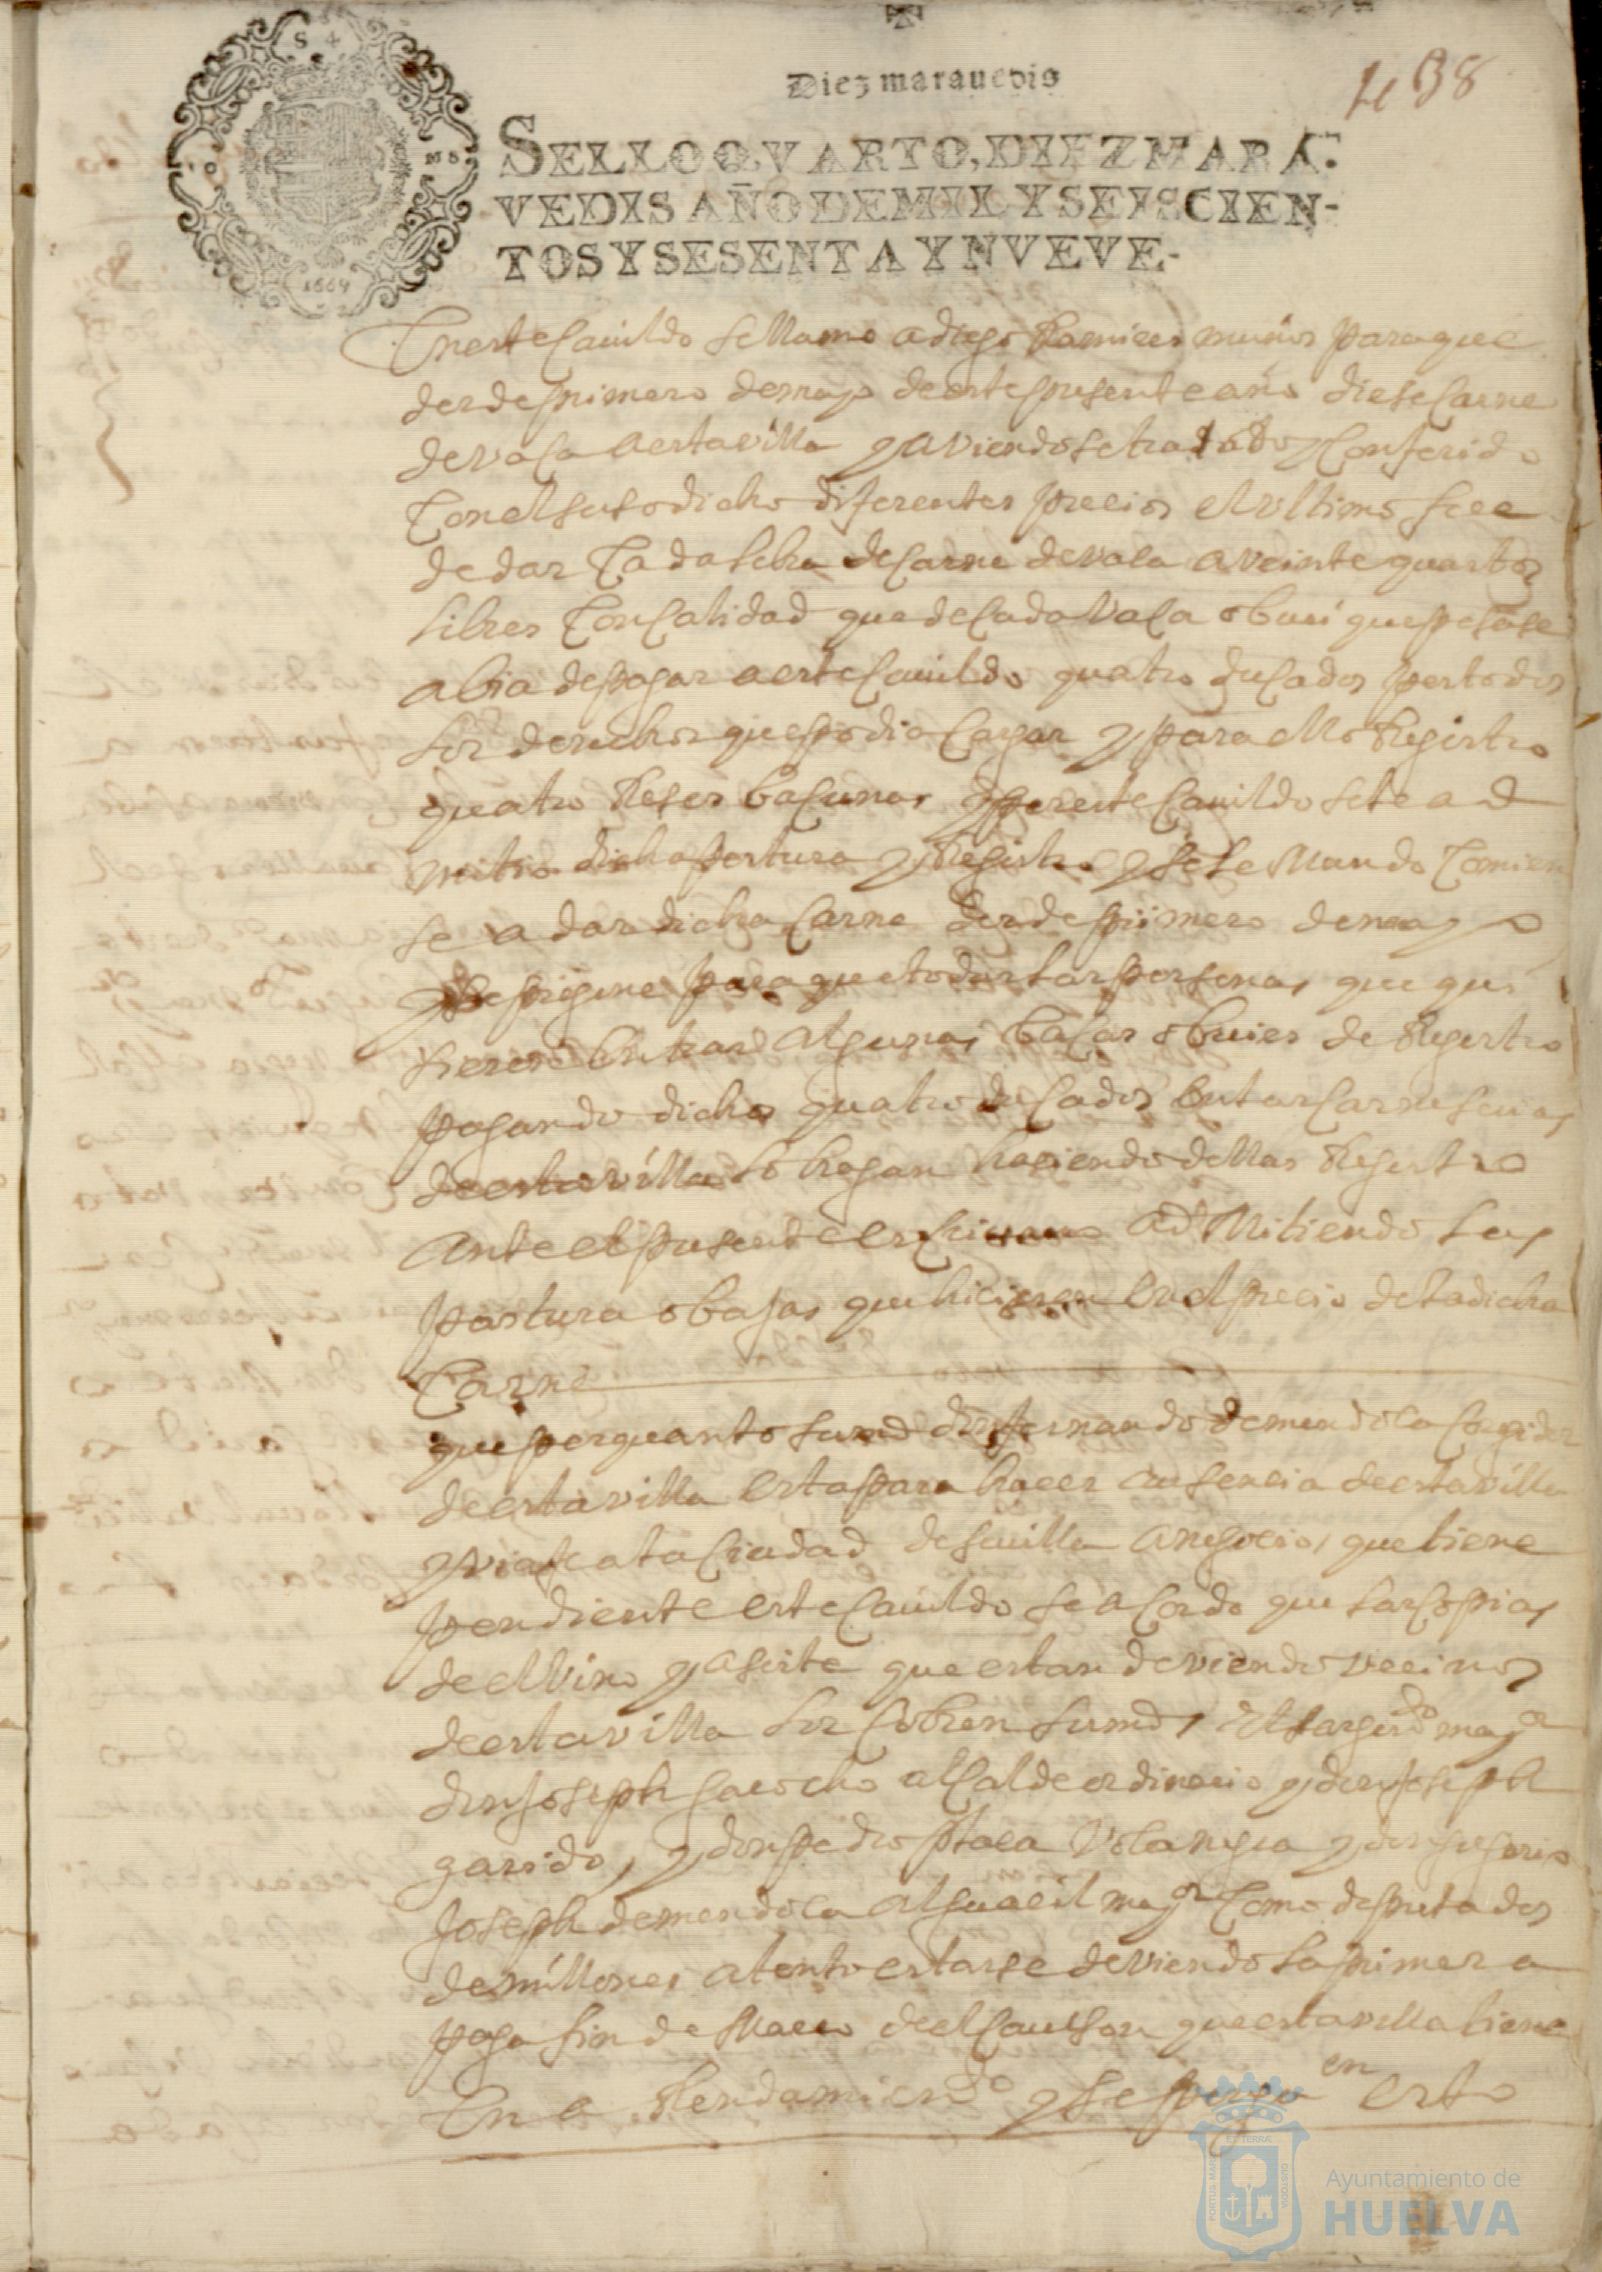 438
Diez marauedis
SELLO QVARTO, DIEZ MARA-
VEDIS AÑO DE MIL Y SEISCIEN-
TOS Y SESENTA Y NVEVE.
1669
En este Cauildo se llamo a diego Ramires muños para que
desde primero de mayo de este presente año diese Carne
de vaca a esta villa y aviendose tratado y Conferido
Con el susodicho diferentes precios el vltimo fue
de dar Cada libra de Carne de vaca a veinte quartos
libres Con Calidad que de Cada vaca o buei que pesase
abia de pagar a este Cauildo quatro ducados por todos
los derechos que podia Cargar y para ello Registro
quatro Reses bacunas y por este Cauildo se le ad
mitio dicha postura y Registro y se le Mando Comien
se a dar dicha Carne desde primero de mayo
y se pregone para que todas las personas que qui
sieren Entrar algunas bacas o buies de Registro
pagando dichos quatro ducados En las Carneserias
de esta villa lo hagan haciendo dellas Registro
Ante el presente escrivano admitiendo las
postura o bajas que hicieren En el precio de la dicha
Carne
que por quanto su md don fernando de mendoca Coregidor
de esta villa esta para hacer ausencia de esta villa
y viaje a la Ciudad de seuilla a negocios que tiene
pendiente este Cauildo se acordo que las Copias
de el vino y aseite que estan deviendo vecinos
de esta villa los Cobren su md, El sargdo mayor
don Joseph Garocho alcalde ordinario y don Joseph
garido, y don pedro plaça y don gregorio
Joseph de mendoca alguacil mayor Como diputados
de millones atento estarse deviendo la primera
paga fin de Março de el que esta villa tiene
En a Rendamiendo y se ponga en esto
PORTUS MARIS
ET TERRÆ
CUSTODIA
Ayuntamiento de
HUELVA